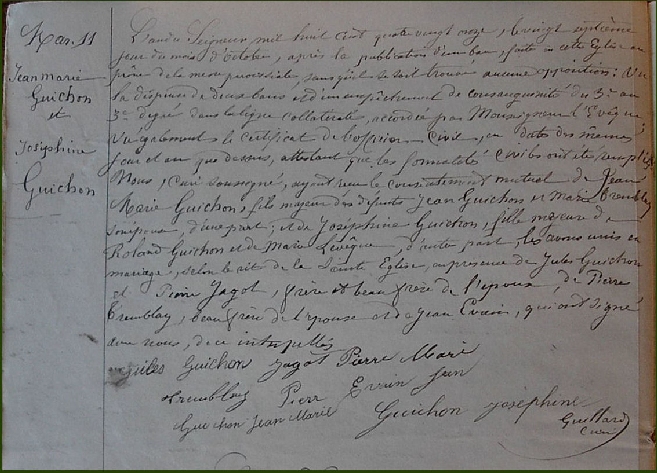 Mar. 11
Jean marie
Guichon
et
Josephine
Guichon
L'an du Seigneur mil huit cent quatre vingt onze, le vingt septième
jour du mois d'octobre, après la publication d'un ban, faite en cette Eglise au
prône de la messe paroissiale sans qu'il se soit trouvé aucune opposition: Vu
la dispense de deux bans et d'un empêchement de consanguinité du 3e au
3e degré dans la ligne collatérale, accordée par Monseigneur l'Evêque
Vu également le certificat de l'officier civil, en date des mêmes
jour et an que dessus, attestant que les formalités civiles ont été remplies
Nous, curé soussigné, ayant reçu le consentement mutuel de Jean
Marie Guichon, fils majeur des défunts Jean Guichon et Marie Tremblay
d'une part; et de Joséphine Guichon, fille majeure de
Roland Guichon et de Marie Levêque, d'autre part, les avons unis en
mariage, selon le rit de la Sainte Eglise, en présence de Jules Guichon
et Pierre Jagot, frère et beau frère de l'époux, de Pierre
Tremblay, beau frère de l'épouse et de Jean Evain, qui ont signé
avec nous, de ce interpellés
Jules Guichon Jagot Pierre Marie
Tremblay Pierre Evain Jean
Guichon Jean Marie Guichon Joséphine
Guillard
Curé